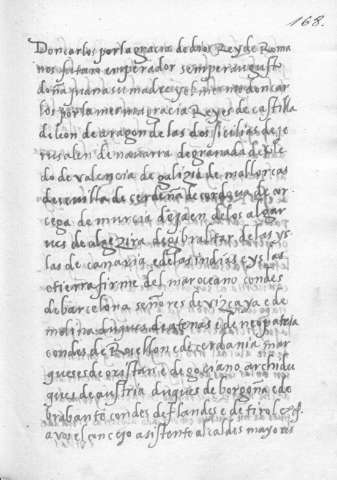 168.
Don carlos por la gracia de dios Rey de Roma
nos futuro emperador semper augusto
doña Juana su madre y el mesmo don car
los por la mesma gracia Reyes de castilla
de leon de aragon de las dos sicilias de je
rusalen de navarra de granada de tole
do de valencia de galizia de mallorcas
de sevilla de cerdeña de cordova de cor
cega de murcia de jaen de los algar
ves de algezira de gibraltar de las ys
las de canaria e de las indias e yslas
e tierra firme del mar oceano condes
de barcelona señores de vizcaya e de
molina duques de atenas e de neopatria
condes de Rosellon e de cerdania mar
queses de oristan e de goziano archidu
ques de austria duques de borgoña e de
brabante condes de flandes e de tirol etc.
a vos el concejo asistente alcaldes mayores